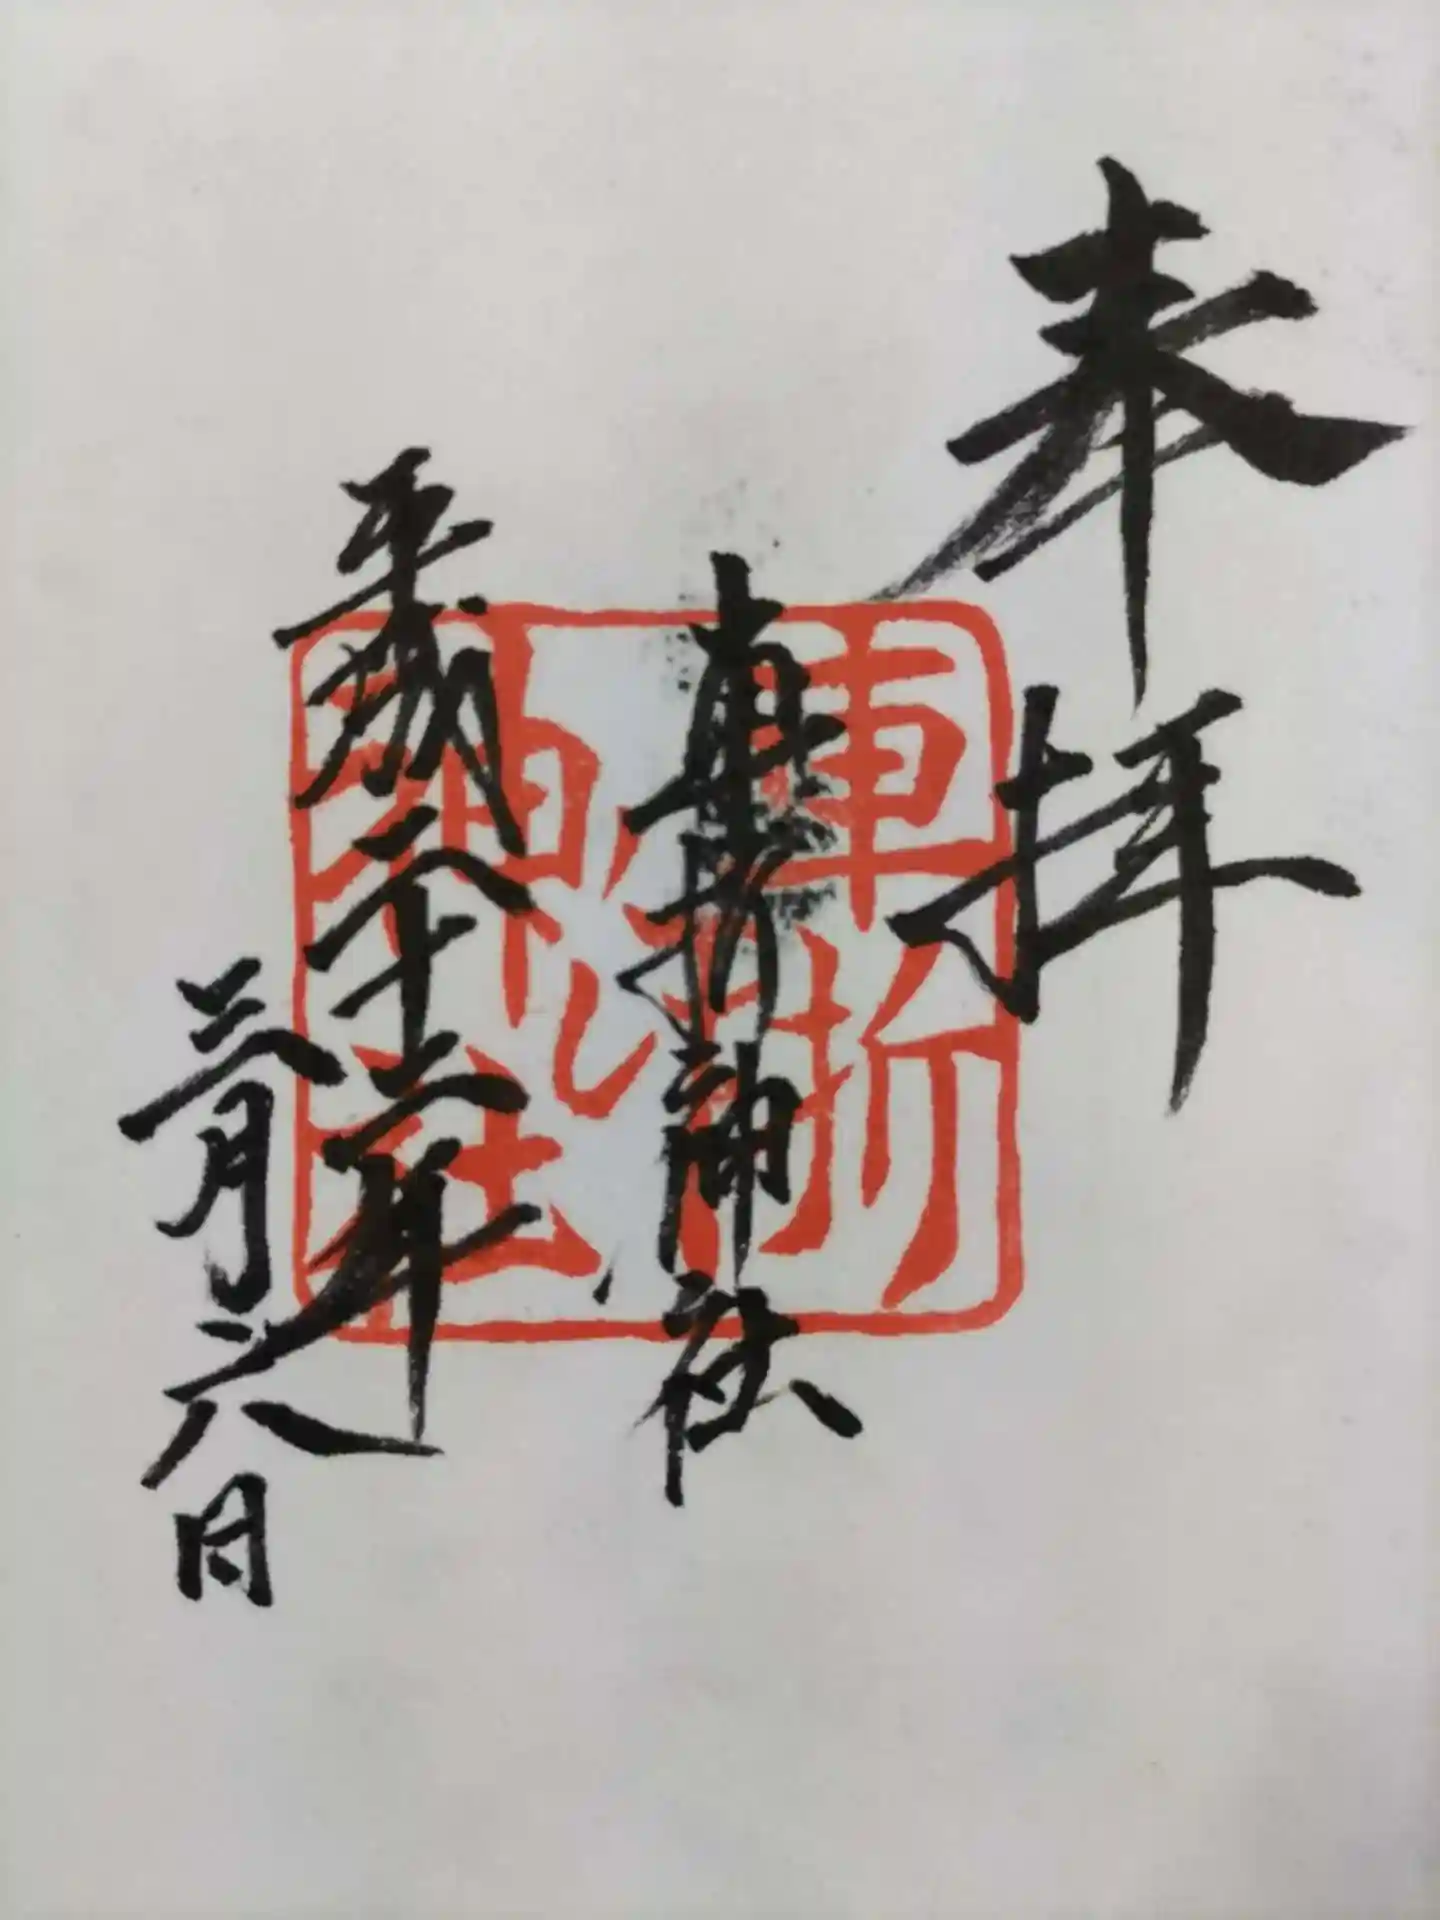 奉拝
車折神社
平成二十二年
三月六日
車折
神社